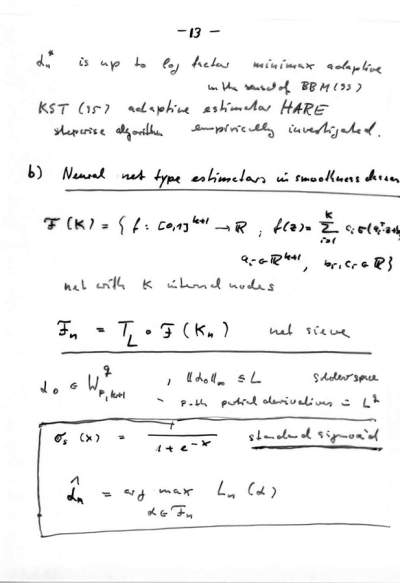 – 13 –
α̂ₙ* is up to log factor minimax adaptive
in the sense of BBM (99)
KST (95) adaptive estimator HARE
stepwise algorithm empirically investigated.
b) Neural net type estimators in smoothness classes
F(K) = { f : [0,1]^{k+1} → ℝ ; f(z) = Σ_{i=1}^{K} c_i σ(a_i^T z + b_i)
a_i ∈ ℝ^{k+1}, b_i, c_i ∈ ℝ }
net with K internal nodes
Fₙ = T_L ∘ F(Kₙ) net sieve
α₀ ∈ W^q_{p,k+1} , ‖α₀‖_∞ ≤ L Sobolev space
p-th partial derivatives in L^q
σ_s(x) = 1 / (1 + e^{-x}) standard sigmoid
α̂ₙ = arg max_{α ∈ Fₙ} Lₙ(α)